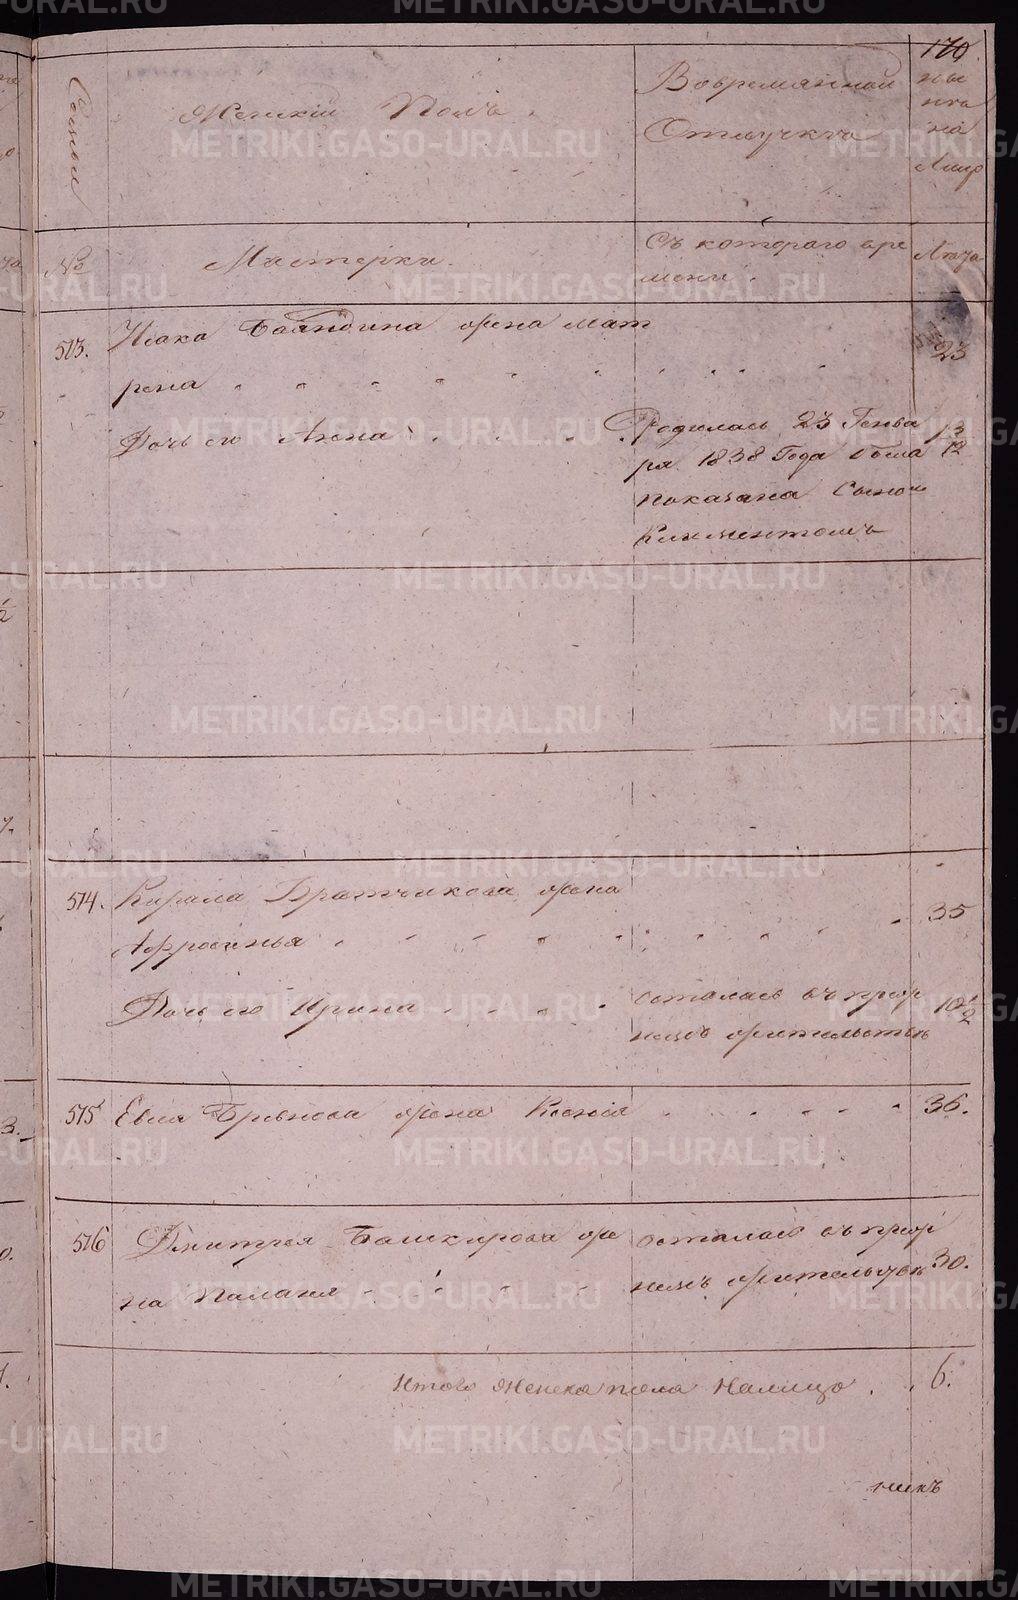 170
Семьи
Женскій Полъ.
Вовремянной
Отлучкѣ
ны
нѣ
на
лицо
№
Мастерки.
Съ котораго вре
мени.
Лета
513.
Исака Баяндина жена Мат
рена
23
Дочь его Анна
Родилась 23 Генва
ря 1838 Года была
показана Сыном
Климентомъ
12
514.
Кирила Братчикова жена
Афросинья
35
Дочь его Ирина
осталась въ преж
немъ жительстве
10 1/2
515
Евсея Бревнова жена Ксенія
36.
516
Дмитрея Башкирова же
на Паланея
осталась въ преж
немъ жительстве
30.
Итого Женска пола Налицо
6.
никъ
METRIKI.GASO-URAL.RU